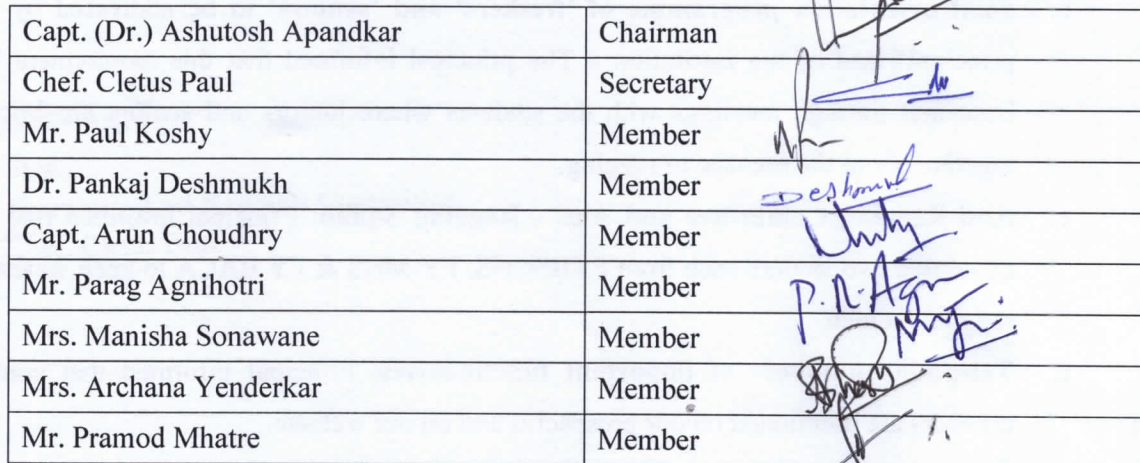 Capt. (Dr.) Ashutosh Apandkar Chairman
Chef. Cletus Paul Secretary
Mr. Paul Koshy Member
Dr. Pankaj Deshmukh Member Deshmukh
Capt. Arun Choudhry Member
Mr. Parag Agnihotri Member P.R.Agni
Mrs. Manisha Sonawane Member
Mrs. Archana Yenderkar Member
Mr. Pramod Mhatre Member